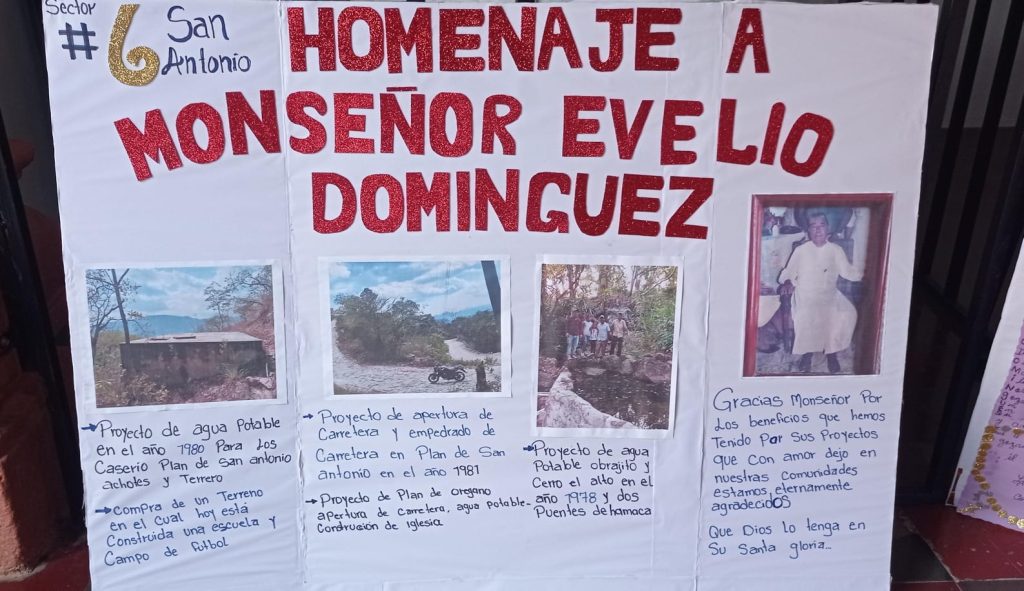 Sector
# 6 San
Antonio
HOMENAJE A
MONSEÑOR EVELIO
DOMINGUEZ
→Proyecto de agua Potable
en el año 1980 Para Los
Caserio Plan de San antonio
achotes y Terrero
→Compra de un Terreno
en el Cual hoy está
Construida una escuela y
Campo de futbol
→Proyecto de apertura de
Carretera y empedrado de
Carretera en Plan de San
antonio en el año 1981
→Proyecto de Plan de oregano
apertura de Carretera, agua Potable-
Contrucion de Iglesia
→Proyecto de agua
Potable obrajito y
Cerro el alto en el
año 1978 y dos
Puentes de hamaca
Gracias Monseñor Por
Los beneficios que hemos
Tenido Por Sus Proyectos
que con amor dejo en
nuestras Comunidades
estamos eternamente
agradecidos
Que Dios lo tenga en
Su Santa gloria...